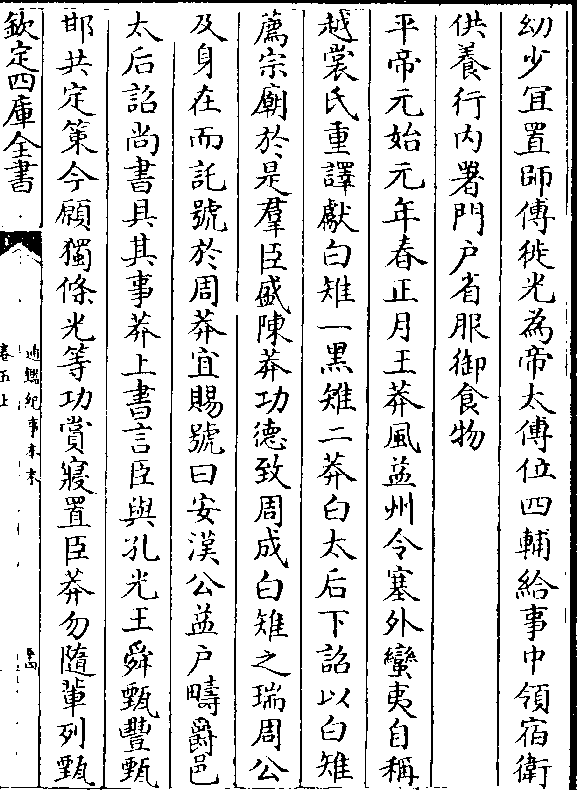 幼少宜置師傅徙光為帝太傅位四輔給事中領宿衛
供養行内署門户省服御食物
平帝元始元年春正月王莽風益州令塞外蠻夷自稱
越裳氏重譯獻白雉一黑雉二莽白太后下詔以白雉
薦宗廟於是羣臣盛陳莽功德致周成白雉之瑞周公
及身在而託號於周莽宜賜號曰安漢公益户疇爵邑
太后詔尚書具其事莽上書言臣與孔光王舜甄豐甄
邯共定策今願獨條光等功賞寢置臣莽勿隨輩列甄
欽定四庫全書
通鑑紀事本末
卷五上